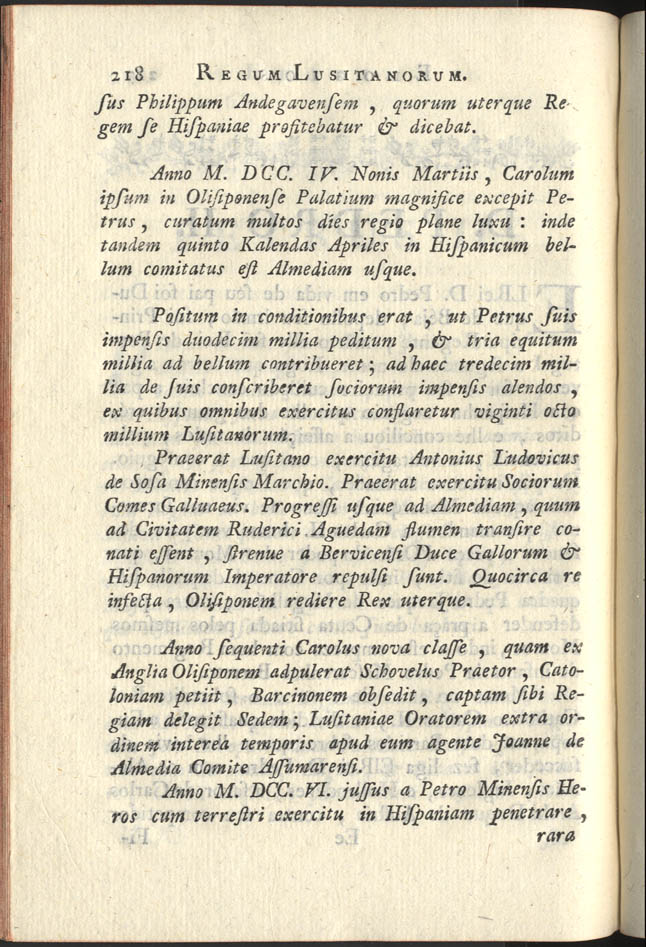 218 REGUM LUSITANORUM.
ſus Philippum Andegavenſem , quorum uterque Re-
gem ſe Hiſpaniae profitebatur & dicebat.
Anno M. DCC. IV. Nonis Martiis , Carolum
ipſum in Oliſiponenſe Palatium magnifice excepit Pe-
trus , curatum multos dies regio plane luxu : inde
tandem quinto Kalendas Apriles in Hiſpanicum bel-
lum comitatus eſt Almediam uſque.
Poſitum in conditionibus erat , ut Petrus ſuis
impenſis duodecim millia peditum , & tria equitum
millia ad bellum contribueret ; ad haec tredecim mil-
lia de ſuis conſcriberet ſociorum impenſis alendos ,
ex quibus omnibus exercitus conflaretur viginti octo
millium Luſitanorum.
Praeerat Luſitano exercitu Antonius Ludovicus
de Soſa Minenſis Marchio. Praeerat exercitu Sociorum
Comes Galluaeus. Progreſſi uſque ad Almediam , quum
ad Civitatem Ruderici Aguedam flumen tranſire co-
nati eſſent , ſtrenue a Bervicenſi Duce Gallorum &
Hiſpanorum Imperatore repulſi ſunt. Quocirca re
infecta , Oliſiponem rediere Rex uterque.
Anno ſequenti Carolus nova claſſe , quam ex
Anglia Oliſiponem adpulerat Schovelus Praetor , Cato-
loniam petiit , Barcinonem obſedit , captam ſibi Re-
giam delegit Sedem ; Luſitaniae Oratorem extra or-
dinem interea temporis apud eum agente Joanne de
Almedia Comite Aſſumarenſi.
Anno M. DCC. VI. juſſus a Petro Minenſis He-
ros cum terreſtri exercitu in Hiſpaniam penetrare ,
rara